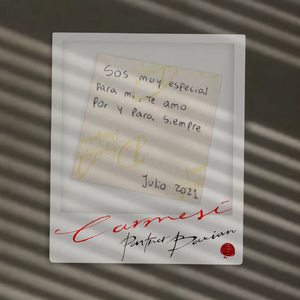 Sos muy especial
para mi, te amo
Por y para siempre
Julio 2021
Carmesí